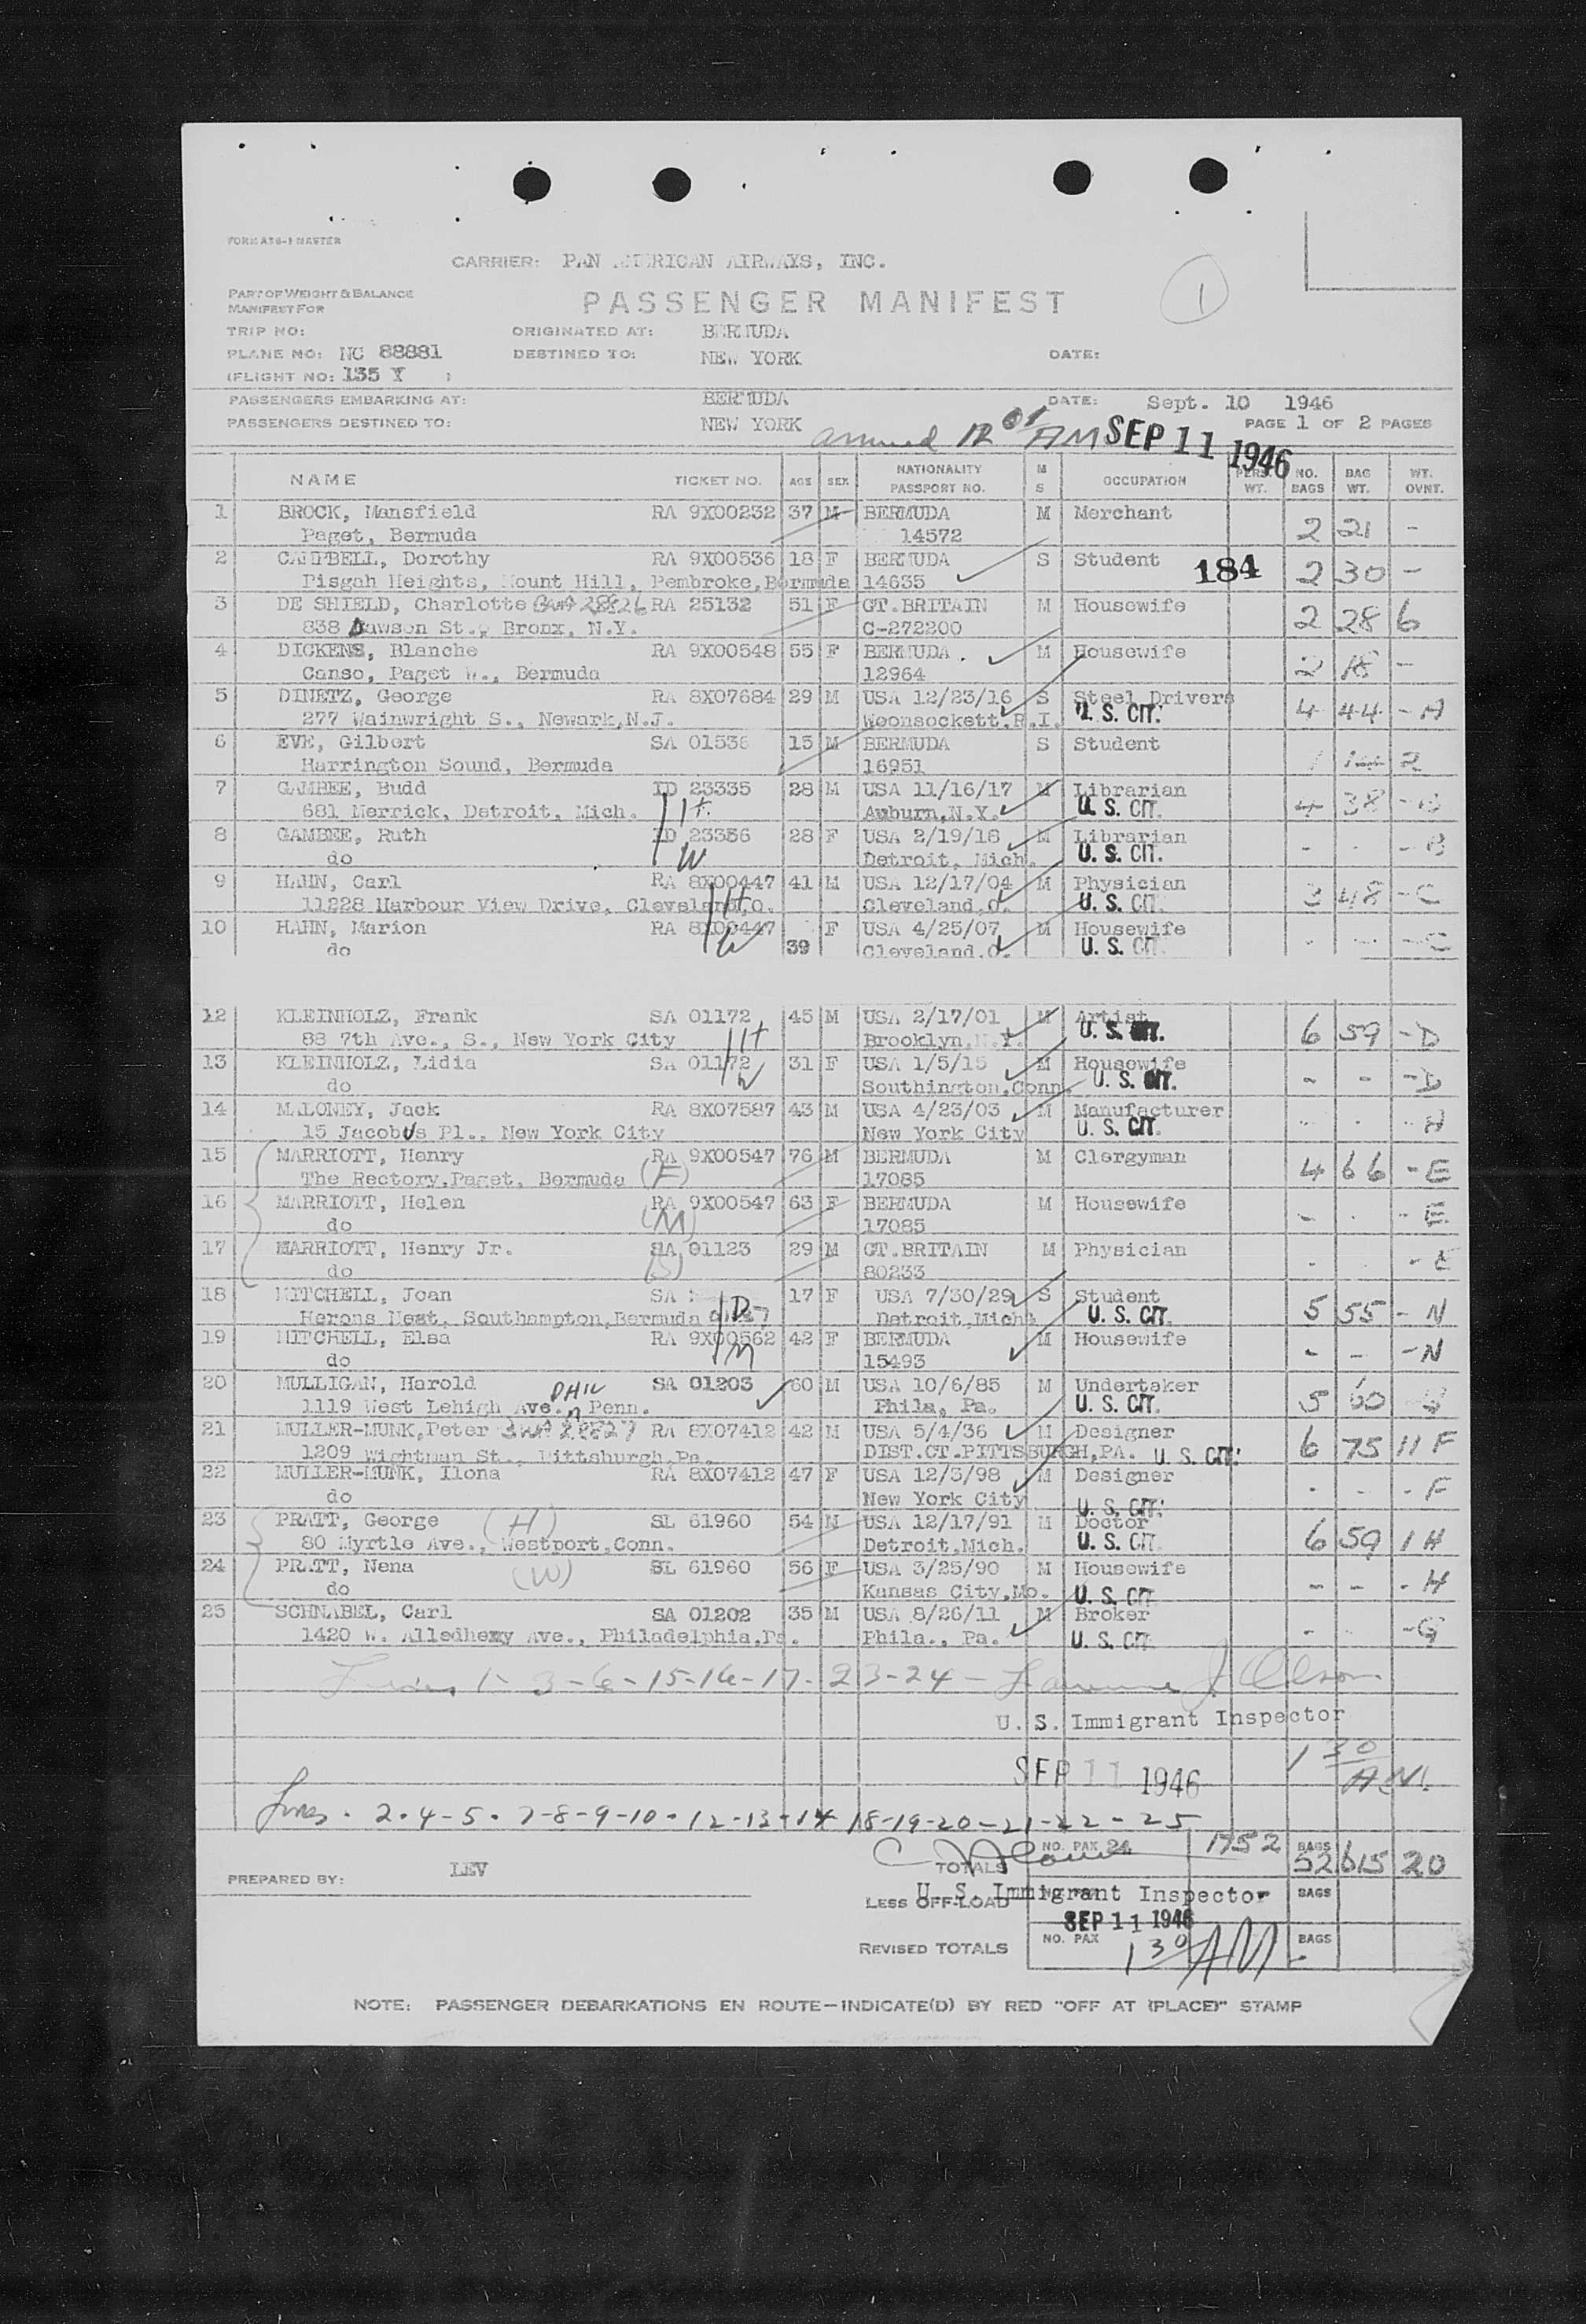 FORM A38-1 MASTER
CARRIER: PAN AMERICAN AIRWAYS, INC.
PART OF WEIGHT & BALANCE
MANIFEST FOR
PASSENGER MANIFEST
1
TRIP NO: ORIGINATED AT: BERMUDA
PLANE NO: NC 88881 DESTINED TO: NEW YORK DATE:
(FLIGHT NO: 135 Y )
PASSENGERS EMBARKING AT: BERMUDA DATE: Sept. 10 1946
PASSENGERS DESTINED TO: NEW YORK PAGE 1 OF 2 PAGES
arrived 12 01 AM SEP 11 1946
NAME TICKET NO. AGE SEX NATIONALITY PASSPORT NO. M S OCCUPATION PERS. WT. NO. BAGS BAG WT. WT. OVNT.
1 BROCK, Mansfield RA 9X00232 37 M BERMUDA M Merchant 2 21 -
Paget, Bermuda 14572
2 CAMPBELL, Dorothy RA 9X00536 18 F BERMUDA S Student 184 2 30 -
Pisgah Heights, Mount Hill, Pembroke, Bermuda 14635
3 DE SHIELD, Charlotte 28826 RA 25132 51 F GT.BRITAIN M Housewife 2 28 6
838 Dawson St., Bronx, N.Y. C-272200
4 DICKENS, Blanche RA 9X00548 55 F BERMUDA M Housewife 2 18 -
Canso, Paget W., Bermuda 12964
5 DINETZ, George RA 8X07684 29 M USA 12/23/16 S Steel Drivers 4 44 - A
277 Wainwright S., Newark, N.J. Woonsockett, R.I. U. S. CIT.
6 EVE, Gilbert SA 01536 15 M BERMUDA S Student 1 14 2
Harrington Sound, Bermuda 16951
7 GAMBEE, Budd TD 23335 28 M USA 11/16/17 M Librarian 4 38 - B
681 Merrick, Detroit, Mich. H Auburn, N.Y. U. S. CIT.
8 GAMBEE, Ruth TD 23336 28 F USA 2/19/18 M Librarian - - - B
do W Detroit, Mich. U. S. CIT.
9 HAHN, Carl RA 8X00447 41 M USA 12/17/04 M Physician 3 48 - C
11228 Harbour View Drive, Cleveland, O. H Cleveland, O. U. S. CIT.
10 HAHN, Marion RA 8X00447 39 F USA 4/25/07 M Housewife - - - C
do W Cleveland, O. U. S. CIT.
12 KLEINHOLZ, Frank SA 01172 45 M USA 2/17/01 M Artist 6 59 - D
88 7th Ave., S., New York City H Brooklyn, N.Y. U. S. CIT.
13 KLEINHOLZ, Lidia SA 01172 31 F USA 1/5/15 M Housewife - - - D
do W Southington, Conn. U. S. CIT.
14 MALONEY, Jack RA 8X07587 43 M USA 4/23/03 M Manufacturer - - - A
15 Jacobus Pl., New York City New York City U. S. CIT.
15 MARRIOTT, Henry RA 9X00547 76 M BERMUDA M Clergyman 4 66 - E
The Rectory, Paget, Bermuda (F) 17085
16 MARRIOTT, Helen RA 9X00547 63 F BERMUDA M Housewife - - - E
do (M) 17085
17 MARRIOTT, Henry Jr. SA 01123 29 M GT.BRITAIN M Physician - - - E
do (S) 80233
18 MITCHELL, Joan SA 17 F USA 7/30/29 S Student 5 55 - N
Herons Nest, Southampton, Bermuda D Detroit, Mich. U. S. CIT.
19 MITCHELL, Elsa RA 9X00562 42 F BERMUDA M Housewife - - - N
do M 15493
20 MULLIGAN, Harold SA 01203 60 M USA 10/6/85 M Undertaker 5 60 - G
1119 West Lehigh Ave. PHIL Penn. Phila, Pa. U. S. CIT.
21 MULLER-MUNK, Peter 28827 RA 8X07412 42 M USA 5/4/36 M Designer 6 75 11 F
1209 Wightman St., Pittsburgh, Pa. DIST.CT.PITTSBURGH, PA. U. S. CIT.
22 MULLER-MUNK, Ilona RA 8X07412 47 F USA 12/3/98 M Designer - - - F
do New York City U. S. CIT.
23 PRATT, George (H) SL 61960 54 M USA 12/17/91 M Doctor 6 59 1 H
80 Myrtle Ave., Westport, Conn. Detroit, Mich. U. S. CIT.
24 PRATT, Nena (W) SL 61960 56 F USA 3/25/90 M Housewife - - - H
do Kansas City, Mo. U. S. CIT.
25 SCHNABEL, Carl SA 01202 35 M USA 8/26/11 M Broker - - - G
1420 W. Alledhemy Ave., Philadelphia, Pa. Phila., Pa. U. S. CIT.
Lines 1-3-6-15-16-17-23-24- Lawrence J. Olson
U. S. Immigrant Inspector
SEP 11 1946 1 30 A.M.
Lines. 2-4-5-7-8-9-10-12-13-14 18-19-20-21-22-25
TOTALS NO. PAX 24 1752 BAGS 52 615 20
PREPARED BY: LEV
LESS OFF-LOAD U. S. Immigrant Inspector BAGS
SEP 11 1946
REVISED TOTALS NO. PAX 1 30 AM BAGS
NOTE: PASSENGER DEBARKATIONS EN ROUTE—INDICATE(D) BY RED "OFF AT (PLACE)" STAMP